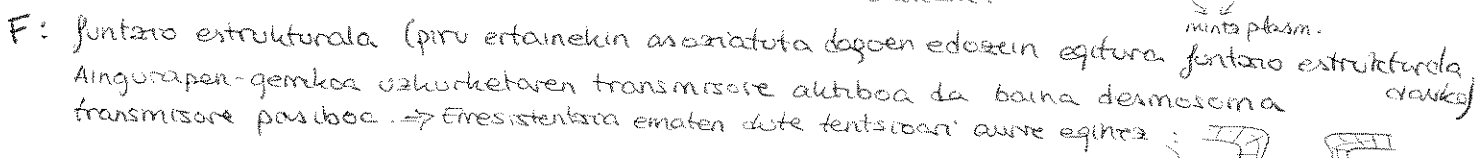 mintz plasm.
F: funtzio estrukturala (piru ertainekin asoziatuta dagoen edozein egitura funtzio estrukturala
Aingurapen-gerrikoa uzkurketaren transmisore aktiboa da baina desmosoma
transmisore pasiboa. => Erresistentzia ematen dute tentsioari aurre eginez :